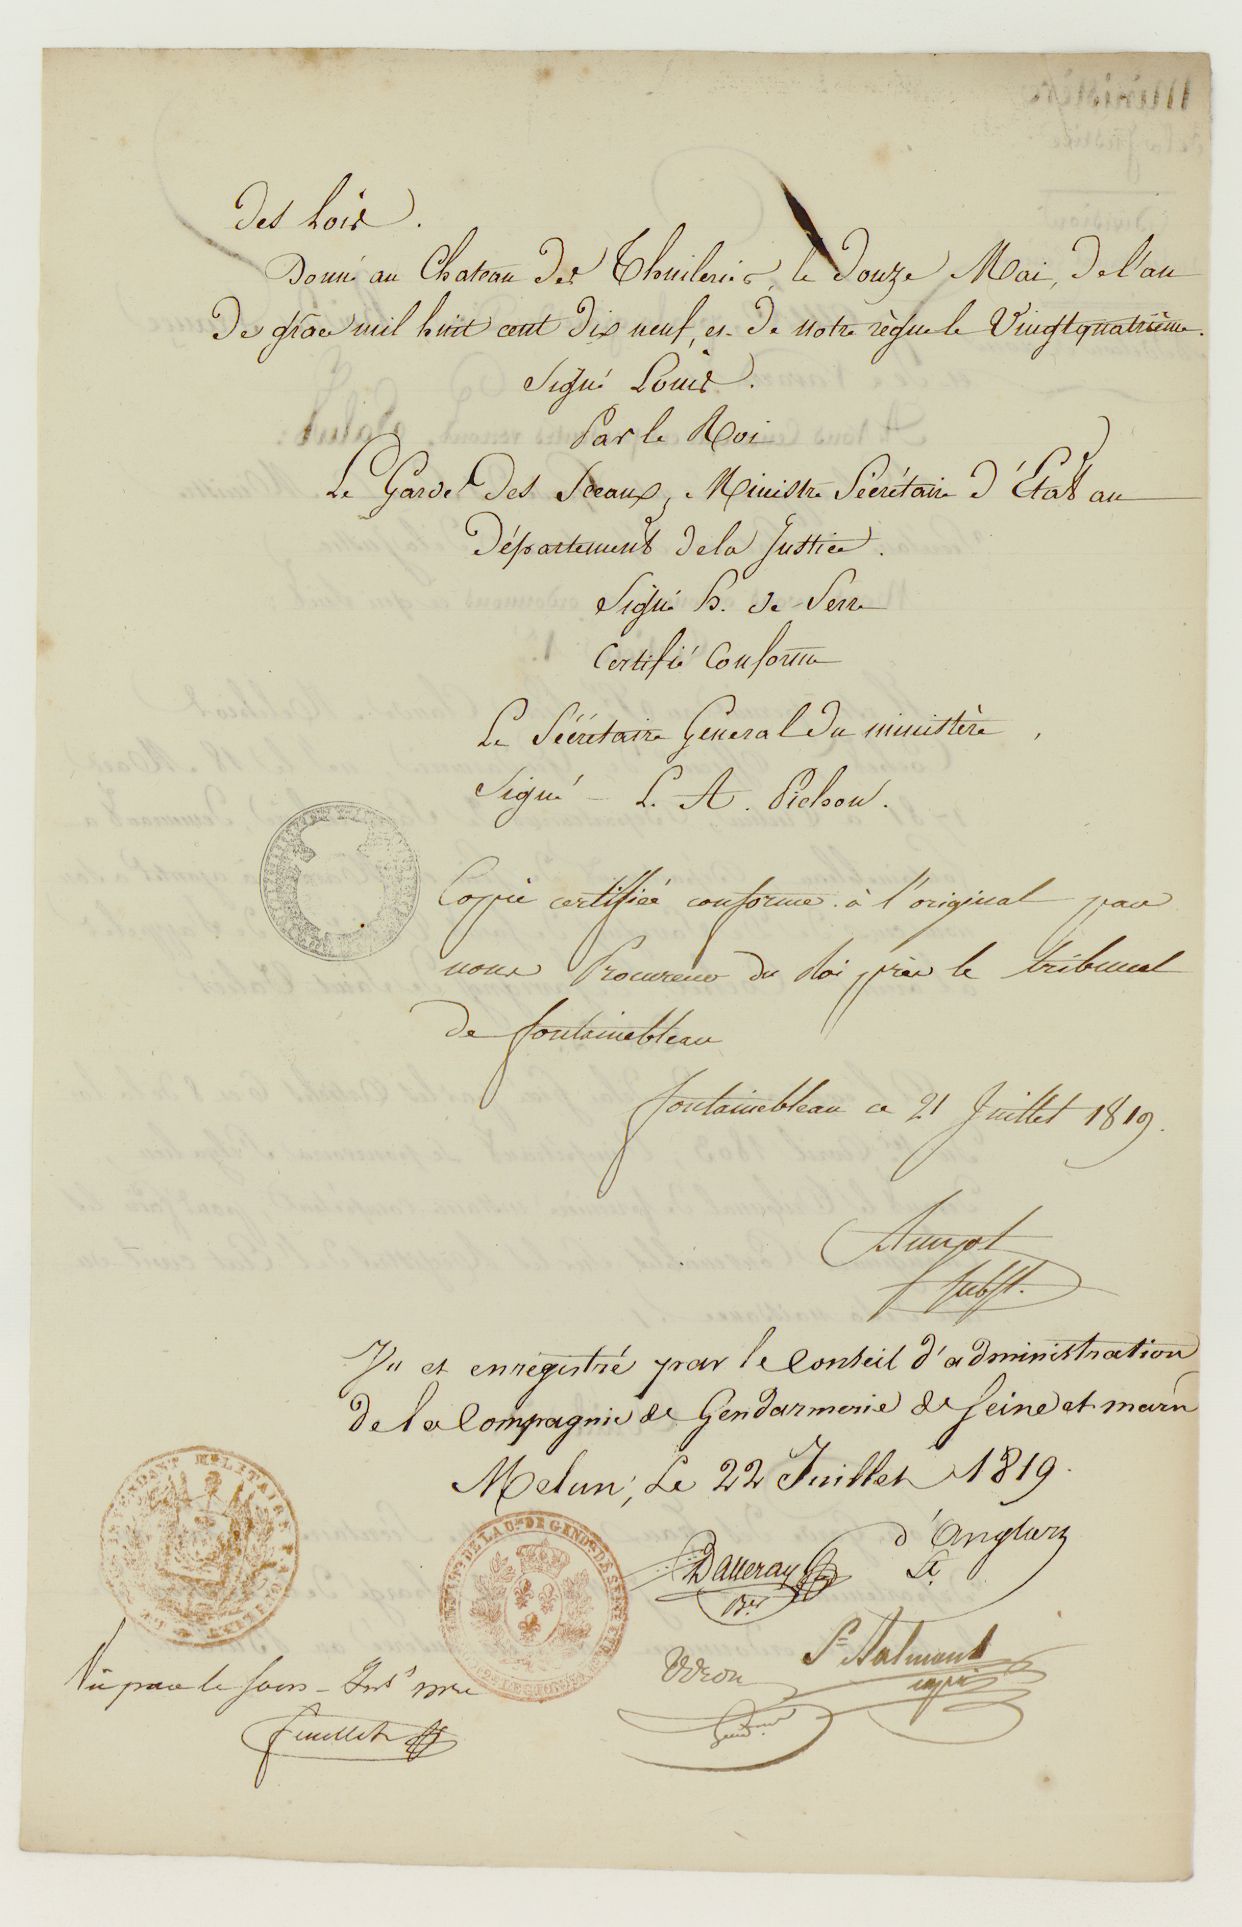 des Lois.
Donné au Chateau des Thuileries, le douze Mai, de l'an
de grâce mil huit cent dix neuf, et de notre règne le Vingtquatrième.
Signé Louis.
Par le Roi
Le Garde des Sceaux, Ministre Secrétaire d'État au
Département de la Justice.
Signé H. de Serre
Certifié Conforme
Le Sécrétaire Général du ministère,
Signé - L. A. Pichon.
Copie certifiée conforme à l'original par
nous Procureur du Roi près le tribunal
de fontainebleau
fontainebleau ce 21 Juillet 1819.
subst.
Vu et enregistré par le Conseil d'administration
de la Compagnie de Gendarmerie de Seine et marne
Melun, Le 22 Juillet 1819.
INTENDANT MILITAIRE
DE LA
d'Anglars
Lt.
Dalleray
Ber
St Aalmant
Véron
Gend.
Vu par le Sous-Int. mre
Feuillet